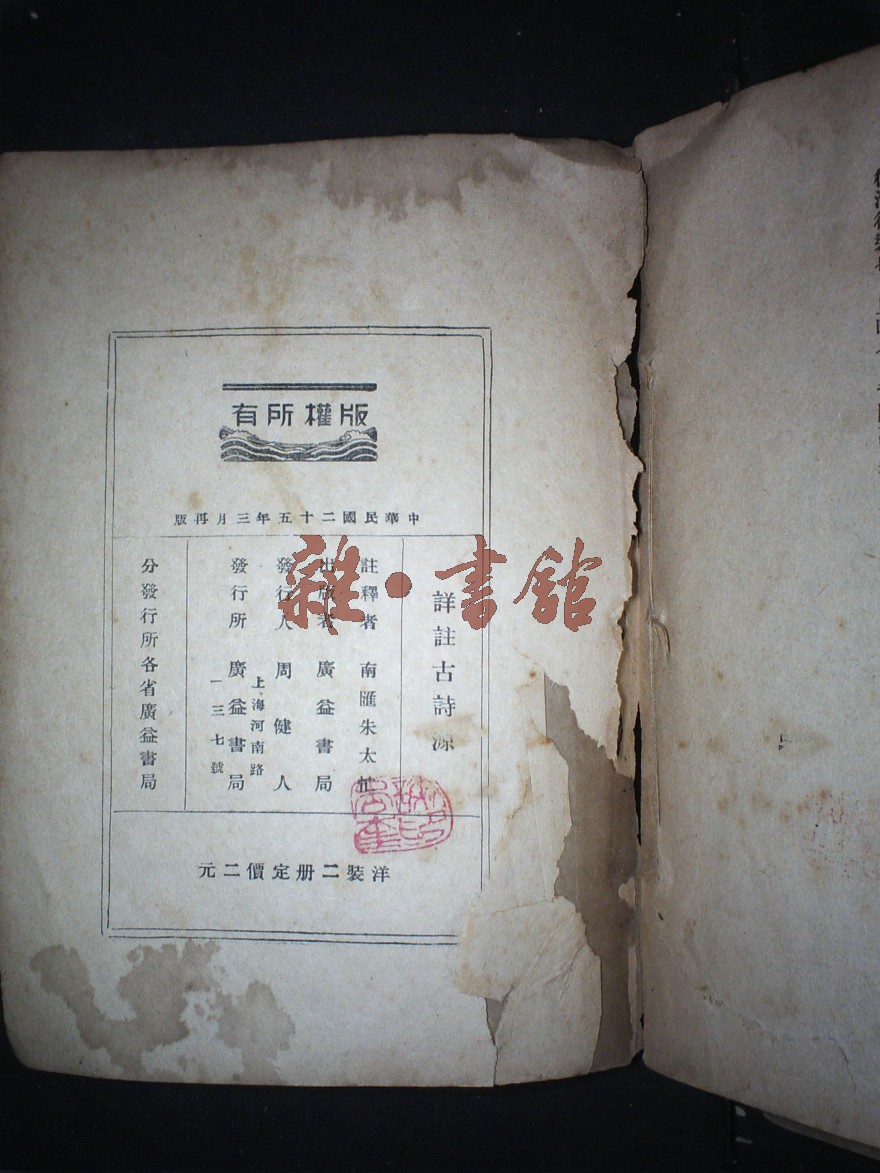 版權所有
中華民國二十五年三月再版
詳註古詩源
註釋者 南匯朱太忙
出版者 廣益書局
發行人 周健人
上海河南路
發行所 廣益書局
一三七號
分發行所各省廣益書局
洋裝二册定價二元
雜·書館